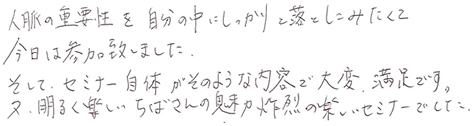 人脈の重要性を自分の中にしっかりと落としこみたくて
今日は参加致しました.
そして、セミナー自体がそのような内容で大変、満足です。
又、明るく楽しいちばさんの魅力炸烈の楽しいセミナーでした.